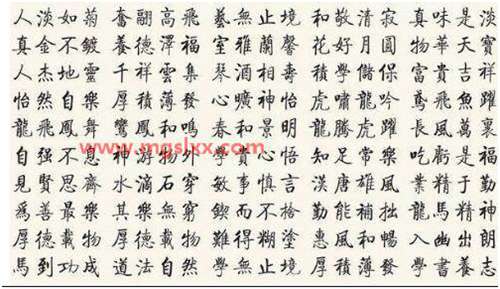 人淡如菊奮翮高飛藝無止境和敬清寂真味是淡
真金不鍍養德澤福室雅蘭馨花好月圓物華天寶
人杰地靈千祥雲集琴酒相壽積學儲保富貴吉祥
怡然自樂厚積薄發心曠神怡虎嘯龍吟鳶飛魚躍
龍飛鳳舞鸞鳳和鳴春和景明龍騰虎躍長風萬裏
www.mgslxx.com
自强不息神游物外學貴心悟知足常樂吃虧是福
見賢思齊水滴石穿敏事慎言漢唐雄風業精於勤
爲善最樂其樂無窮鍥而不捨勤能補拙龍馬精神
厚德載物厚德載物難得糊塗惠風和暢入幽出朗
馬到功成道法自然學無止境厚積薄發學書養志